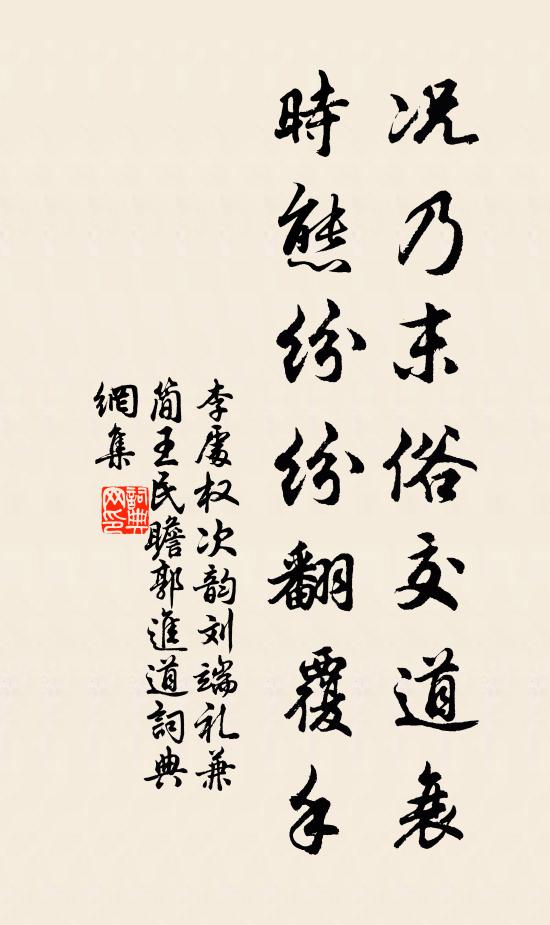 况乃末俗交道衰
時態紛紛翻覆手
李處权次韵刘端礼兼
简王民瞻郭進道詞典
網集
詞典网印